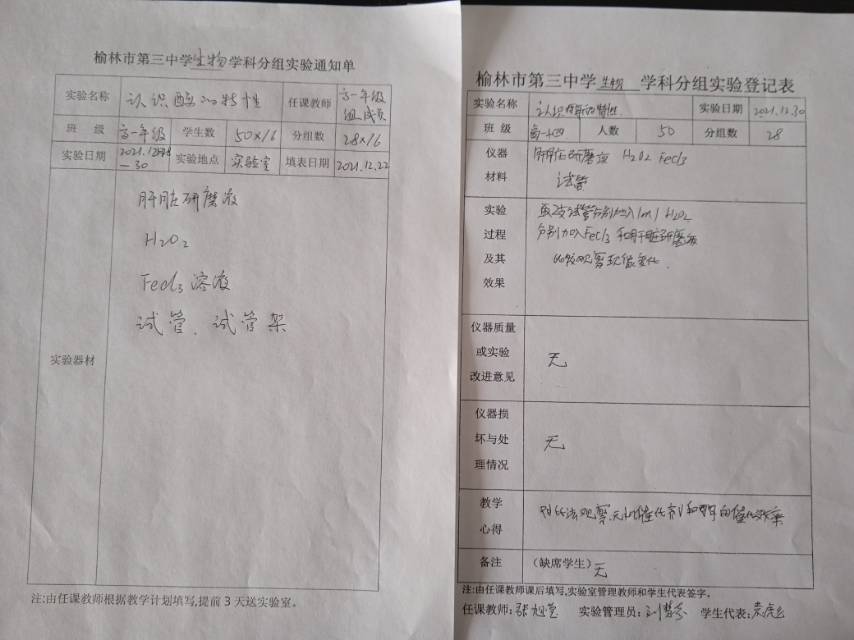 榆林市第三中学生物学科分组实验通知单
实验名称 认识酶的特性 任课教师 高一年级组成员
班 级 高一年级 学生数 50×16 分组数 28×16
实验日期 2021.12 —30 实验地点 实验室 填表日期 2021.12.22
实验器材
肝脏研磨液
H2O2
FeCl3溶液
试管、试管架
注:由任课教师根据教学计划填写,提前3天送实验室。
榆林市第三中学 生物 学科分组实验登记表
实验名称 认识酶的特性 实验日期 2021.12.30
班 级 人数 50 分组数 28
仪器材料 肝脏研磨液 H2O2 FeCl3
试管
实验过程及其效果
取2支试管分别加入1ml H2O2
分别加入FeCl3和肝脏研磨液
比较观察现象变化.
仪器质量或实验改进意见 无
仪器损坏与处理情况 无
教学心得 观察无机催化剂和酶的催化效率
备注 (缺席学生)无
注:由任课教师课后填写,实验室管理教师和学生代表签字。
任课教师:张旭堂 实验管理员: 学生代表: